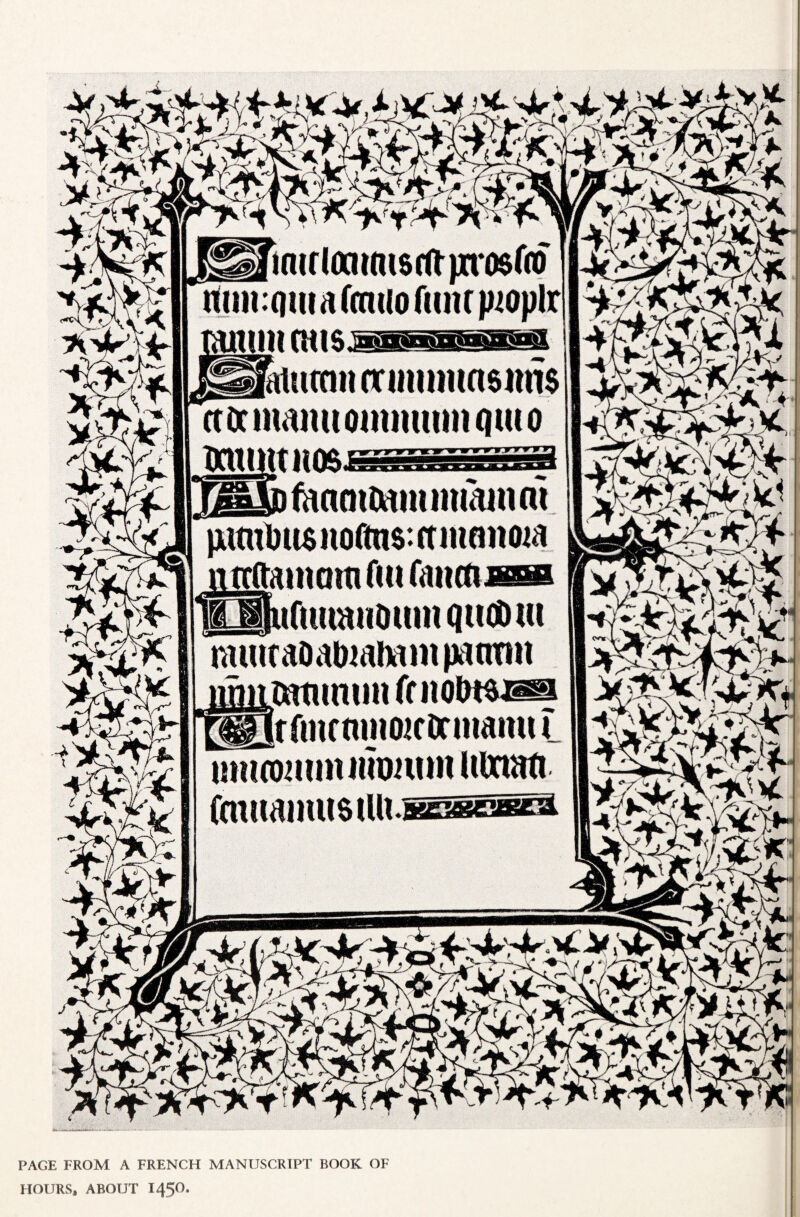 Sicut locutus est per os sc̄o
rum: qui a seculo sunt prophe
tarum eius.
Salutem ex inimicis nr̄is
et de manu omnium qui o
derunt nos.
Ad faciendam mīam cū
patribus nostris: et memora
ri testamenti sui sancti
Iusiurandum quod iu
rauit ad abraham patrem
nr̄m daturum se nobis.
Ut sine timore de manu ī
imicorum nr̄orum liberati.
seruiamus illi.
PAGE FROM A FRENCH MANUSCRIPT BOOK OF
HOURS, ABOUT 1450.